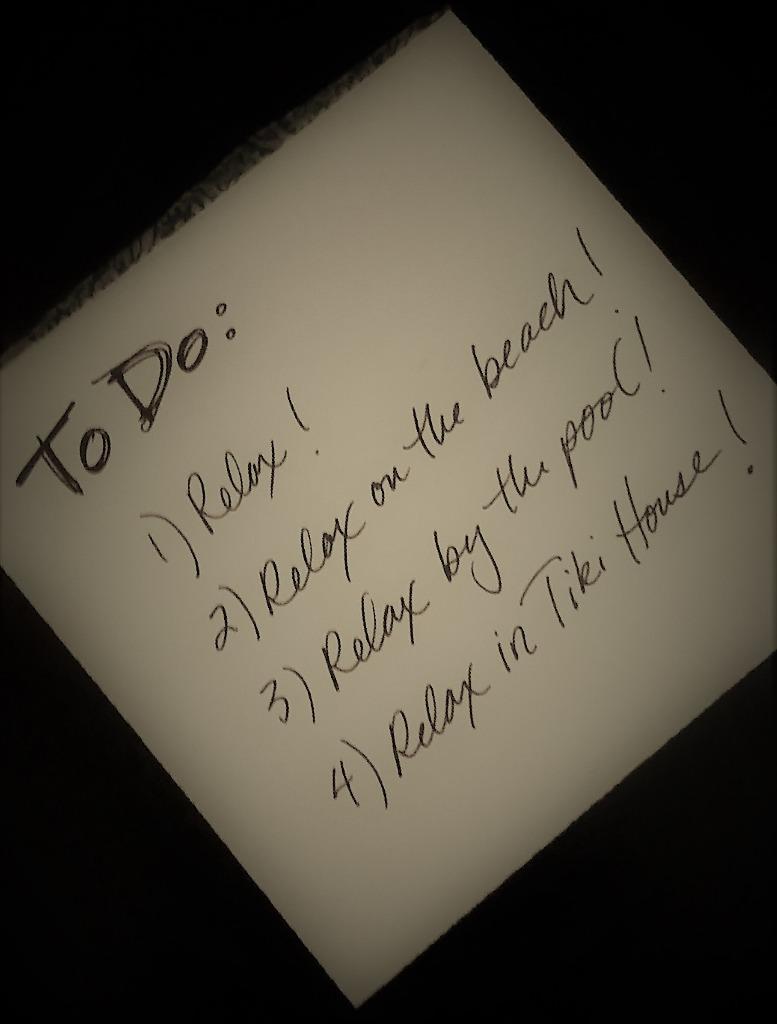 To Do:
1) Relax!
2) Relax on the beach!
3) Relax by the pool!
4) Relax in Tiki House!